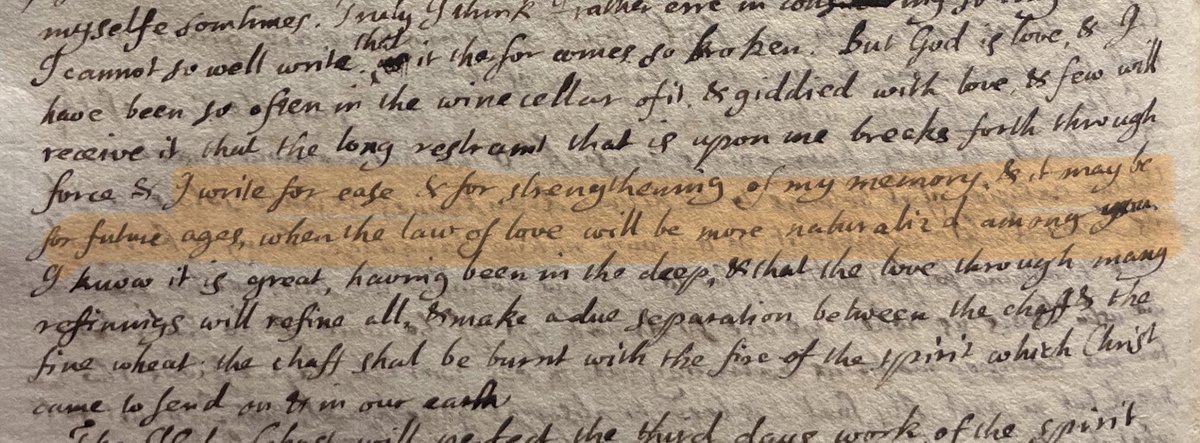 myselfe somtimes. Truly I think I rather erre in
I cannot so well write, that it therfor comes so broken. But God is love, & I
have been so often in the wine cellar of it, & giddied with love, & few will
receive it that the long restraint that is upon me breaks forth through
force & I write for ease & for strengthening of my memory, & it may be
for future ages, when the law of love will be more naturaliz'd among
I know it is great, having been in the deep, & that the love through many
refinings will refine all, & make a due separation between the chaff & the
fine wheat; the chaff shal be burnt with the fire of the spirit which Christ
came to send on & in our earth
will perfect the third days work of the spirit